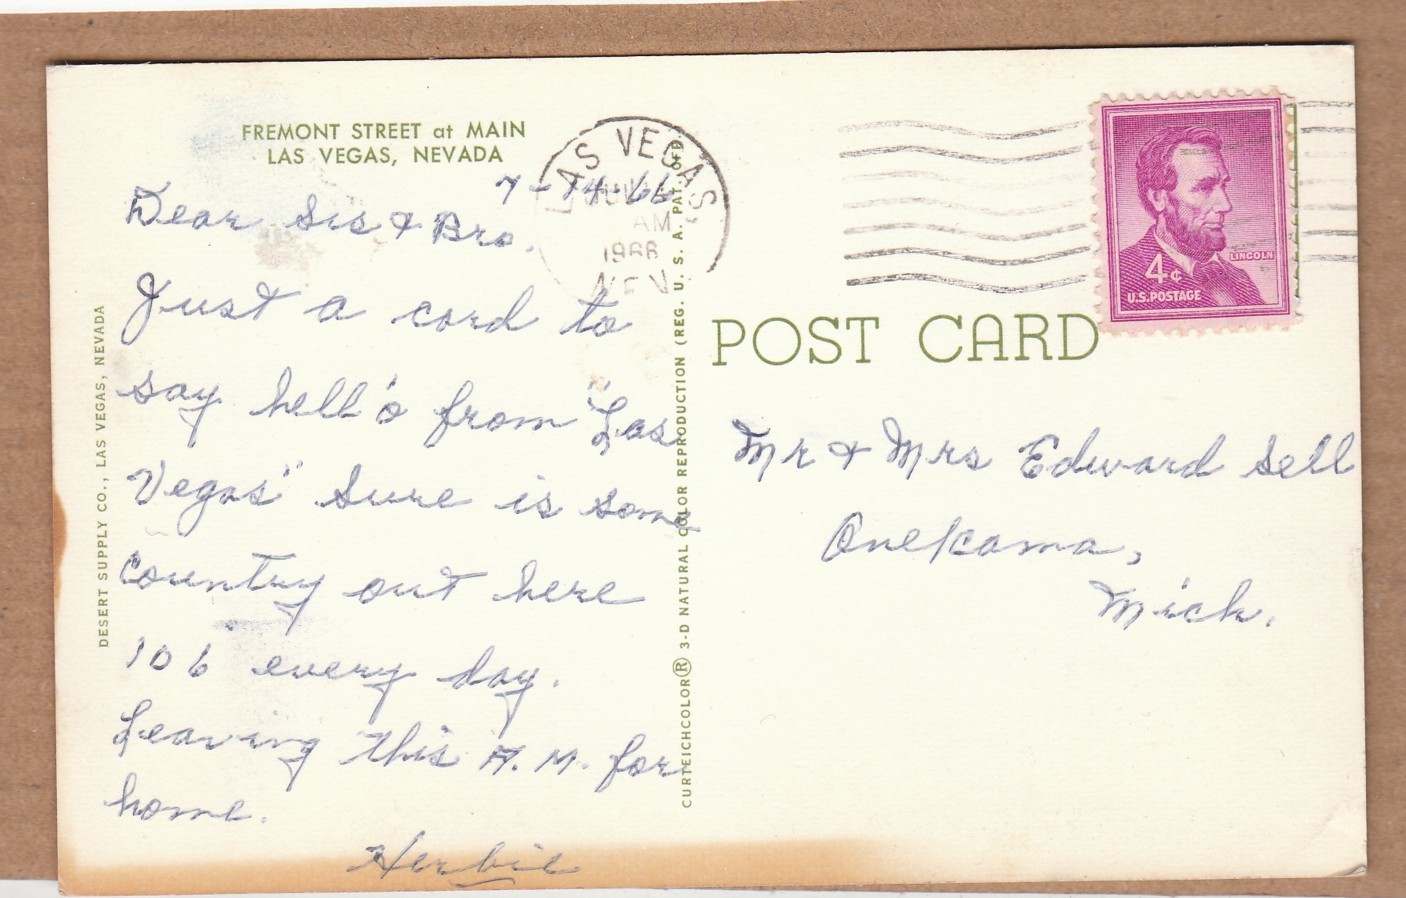 FREMONT STREET at MAIN
LAS VEGAS, NEVADA
7-14-66
Dear Sis & Bro.
Just a card to
say hell'o from "Las
Vegas" Sure is some
country out here
106 every day.
Leaving this A.M. for
home.
Herbie
DESERT SUPPLY CO., LAS VEGAS, NEVADA
CURTEICHCOLOR® 3-D NATURAL COLOR REPRODUCTION (REG. U. S. A. PAT. OFF.)
LAS VEGAS,
AM
1966
NEV
LINCOLN
4¢
U.S. POSTAGE
POST CARD
Mr & Mrs Edward Sell
Onekama,
Mich.